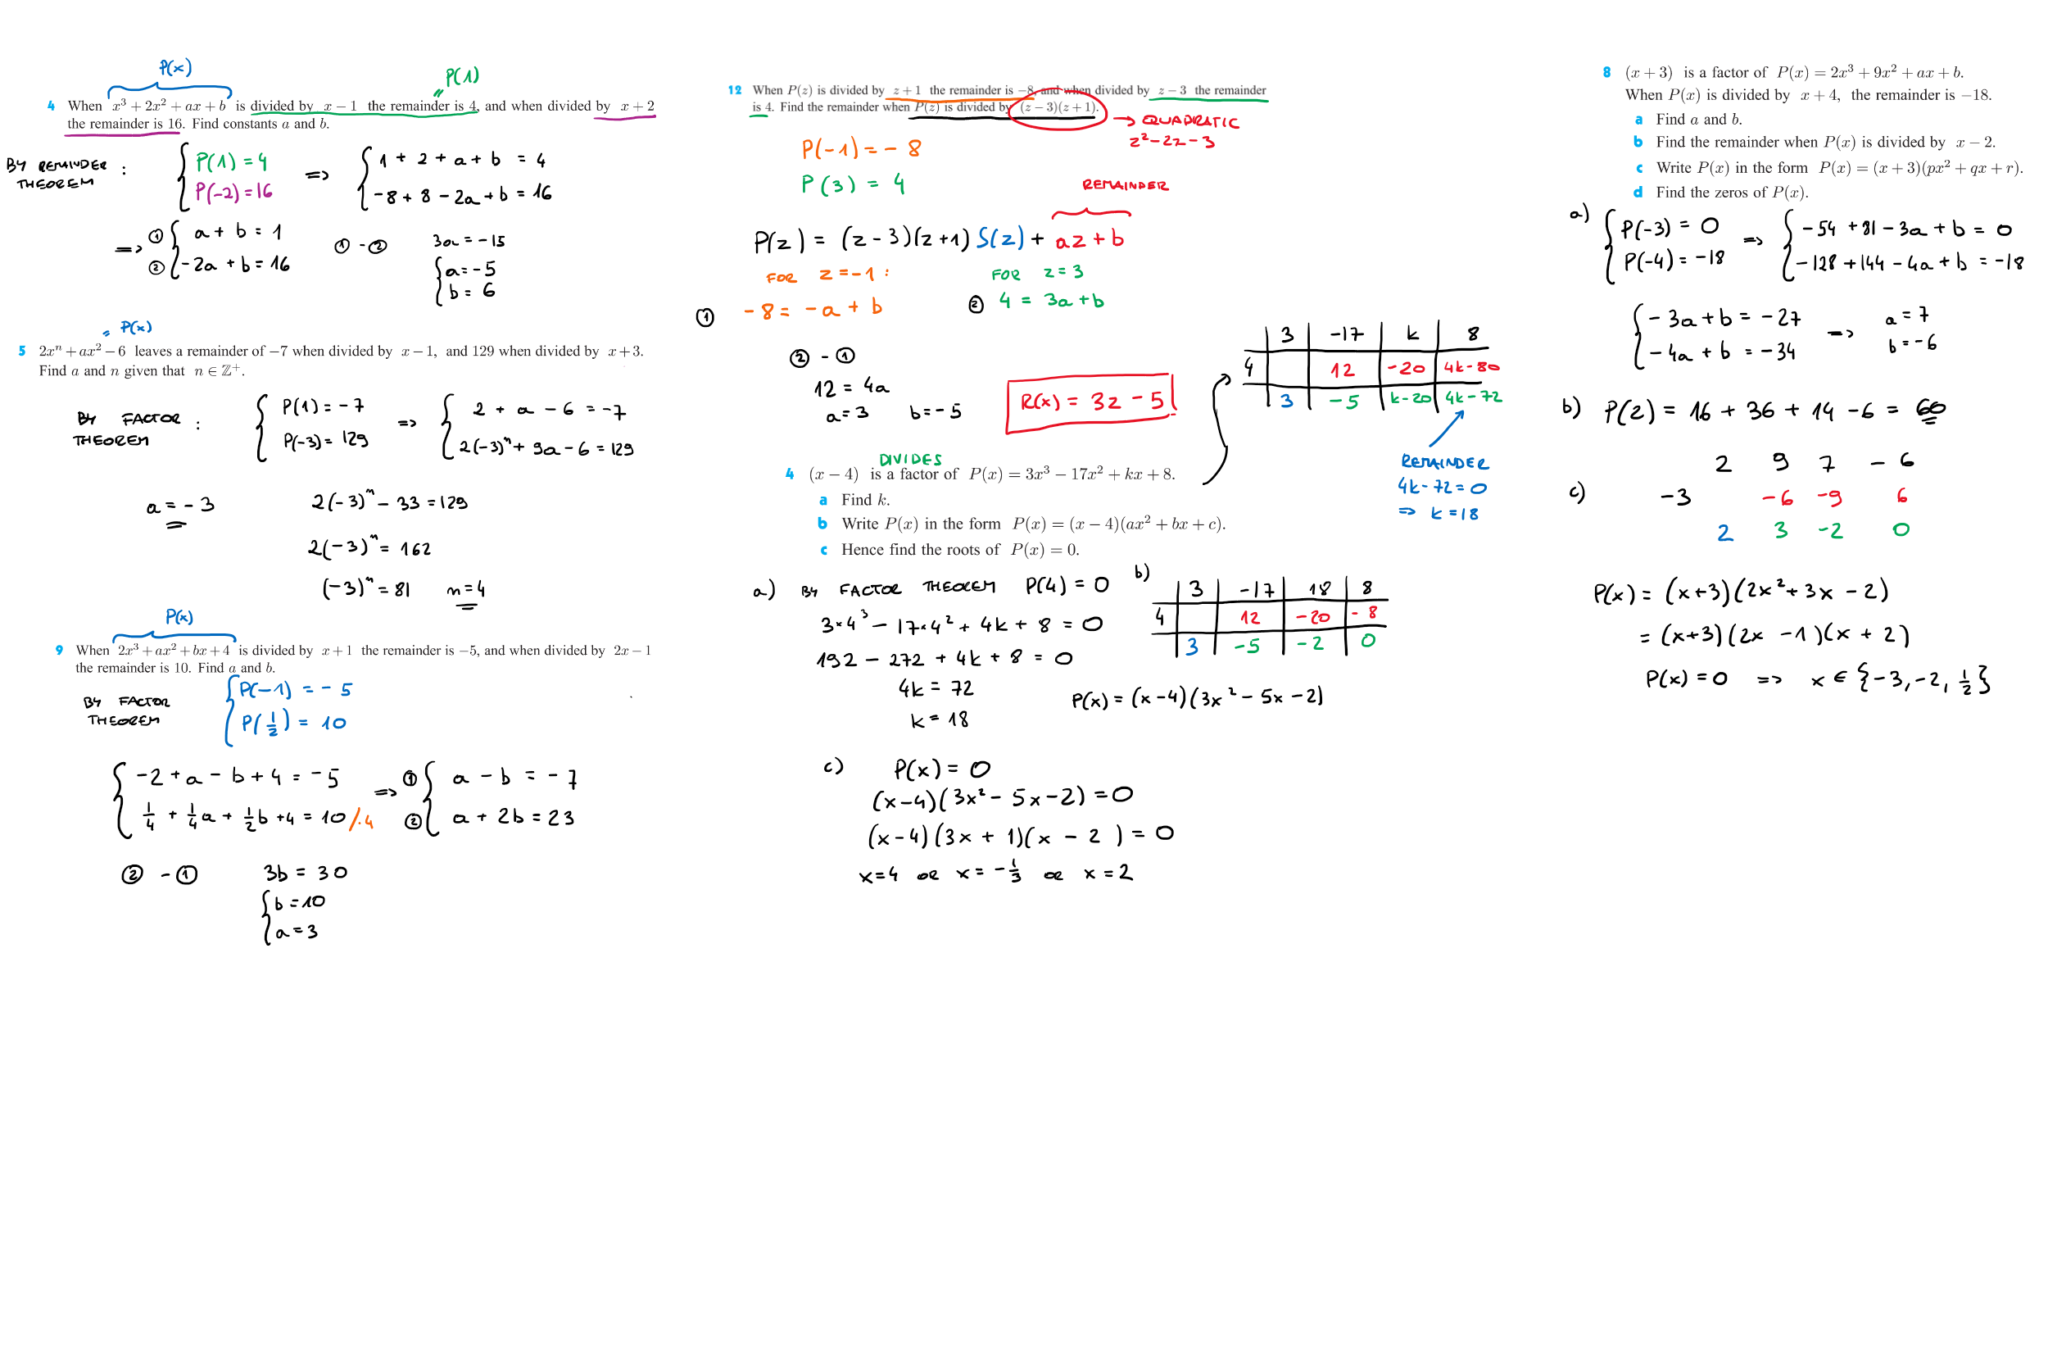 P(x)
P(1)
4 When x³ + 2x² + ax + b is divided by x − 1 the remainder is 4, and when divided by x + 2
the remainder is 16. Find constants a and b.
BY REMAINDER THEOREM :
P(1) = 4 => 1 + 2 + a + b = 4
P(-2) = 16 -8 + 8 - 2a + b = 16
=> ① a + b = 1
② -2a + b = 16
① - ②
3a = -15
a = -5
b = 6
= P(x)
5 2xⁿ + ax² − 6 leaves a remainder of −7 when divided by x − 1, and 129 when divided by x + 3.
Find a and n given that n ∈ ℤ⁺.
BY FACTOR THEOREM :
P(1) = -7 => 2 + a - 6 = -7
P(-3) = 129 2(-3)ⁿ + 9a - 6 = 129
a = -3
2(-3)ⁿ - 33 = 129
2(-3)ⁿ = 162
(-3)ⁿ = 81 n = 4
P(x)
9 When 2x³ + ax² + bx + 4 is divided by x + 1 the remainder is −5, and when divided by 2x − 1
the remainder is 10. Find a and b.
BY FACTOR THEOREM
P(-1) = -5
P(½) = 10
-2 + a - b + 4 = -5 => ① a - b = -7
¼ + ¼a + ½b + 4 = 10 /·4 ② a + 2b = 23
② - ① 3b = 30
b = 10
a = 3
12 When P(z) is divided by z + 1 the remainder is −8, and when divided by z − 3 the remainder
is 4. Find the remainder when P(z) is divided by (z − 3)(z + 1).
→ QUADRATIC
z² - 2z - 3
P(-1) = -8
P(3) = 4
REMAINDER
P(z) = (z-3)(z+1) S(z) + az + b
FOR z = -1 :
① -8 = -a + b
FOR z = 3
② 4 = 3a + b
② - ①
12 = 4a
a = 3 b = -5
R(x) = 3z - 5
3 -17 k 8
4 12 -20 4k-80
3 -5 k-20 4k-72
REMAINDER
4k - 72 = 0
=> k = 18
DIVIDES
4 (x − 4) is a factor of P(x) = 3x³ − 17x² + kx + 8.
a Find k.
b Write P(x) in the form P(x) = (x − 4)(ax² + bx + c).
c Hence find the roots of P(x) = 0.
a) BY FACTOR THEOREM P(4) = 0
3·4³ - 17·4² + 4k + 8 = 0
192 - 272 + 4k + 8 = 0
4k = 72
k = 18
b)
3 -17 18 8
4 12 -20 -8
3 -5 -2 0
P(x) = (x-4)(3x² - 5x - 2)
c) P(x) = 0
(x-4)(3x² - 5x - 2) = 0
(x-4)(3x + 1)(x - 2) = 0
x = 4 or x = -⅓ or x = 2
8 (x + 3) is a factor of P(x) = 2x³ + 9x² + ax + b.
When P(x) is divided by x + 4, the remainder is −18.
a Find a and b.
b Find the remainder when P(x) is divided by x − 2.
c Write P(x) in the form P(x) = (x + 3)(px² + qx + r).
d Find the zeros of P(x).
a) P(-3) = 0 => -54 + 81 - 3a + b = 0
P(-4) = -18 -128 + 144 - 4a + b = -18
-3a + b = -27 => a = 7
-4a + b = -34 b = -6
b) P(2) = 16 + 36 + 14 - 6 = 60
c)
2 9 7 -6
-3 -6 -9 6
2 3 -2 0
P(x) = (x+3)(2x² + 3x - 2)
= (x+3)(2x - 1)(x + 2)
P(x) = 0 => x ∈ {-3, -2, ½}